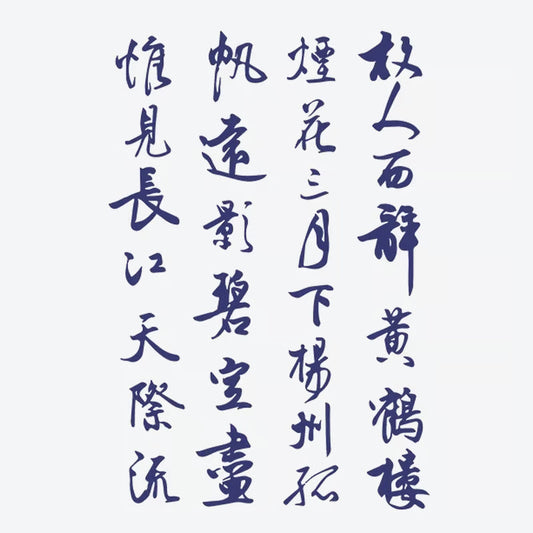 故人西辞黄鶴樓
煙花三月下楊州孤
帆遠影碧空盡
惟見長江天際流